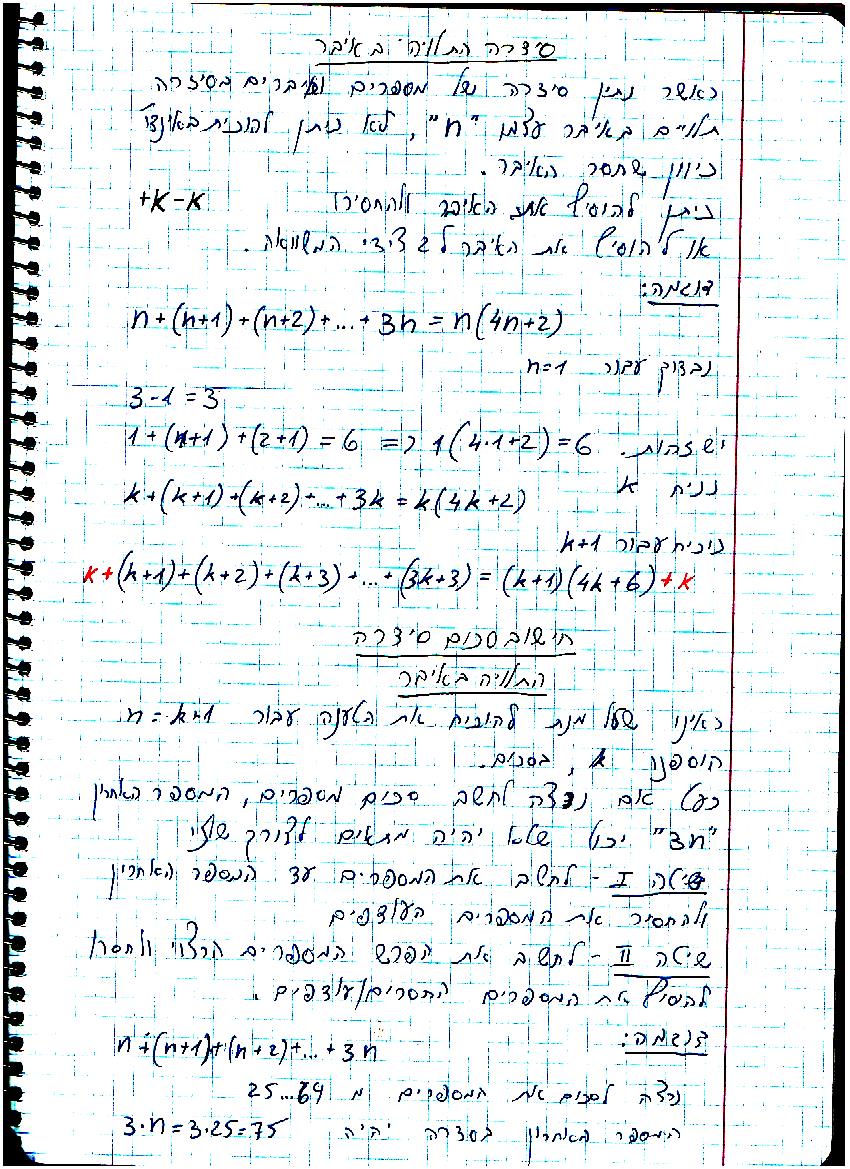 סידרה התלויה באיבר
כאשר נתון סידרה של מספרים ואיברים בסידרה
תלויים באיבר עצמו "n", לא ניתן להוכיח באינדו'
כיוון שחסר האיבר.
ניתן להוסיף את האיבר ולהחסירו +k-k
או להוסיף את האיבר ל 2 צידי המשוואה.
דוגמה:
n+(n+1)+(n+2)+...+3n = n(4n+2)
נבדוק עבור n=1
3·1=3
1+(1+1)+(2+1)=6 => 1(4·1+2)=6 יש זהות.
נניח k
k+(k+1)+(k+2)+...+3k = k(4k+2)
נוכיח עבור k+1
k+(k+1)+(k+2)+(k+3)+...+(3k+3) = (k+1)(4k+6)+k
חישוב סכום סידרה
התלויה באיבר
ראינו שעל מנת להוכיח את הטענה עבור n=k+1
הוספנו k, בסכום.
כעת אם נרצה לחשב סכום מספרים, המספר האחרון
"3n" יכול שלא יהיה מתאים לצורך
שיטה I - לחשב את המספרים עד המספר האחרון
ולהחסיר את המספרים העודפים
שיטה II - לחשב את הפרש המספרים הרצוי ולחסר/
להוסיף את המספרים החסרים/עודפים.
דוגמה:
n+(n+1)+(n+2)+...+3n
נרצה לסכום את המספרים מ 25...
המספר האחרון בסדרה יהיה 3·n=3·25=75